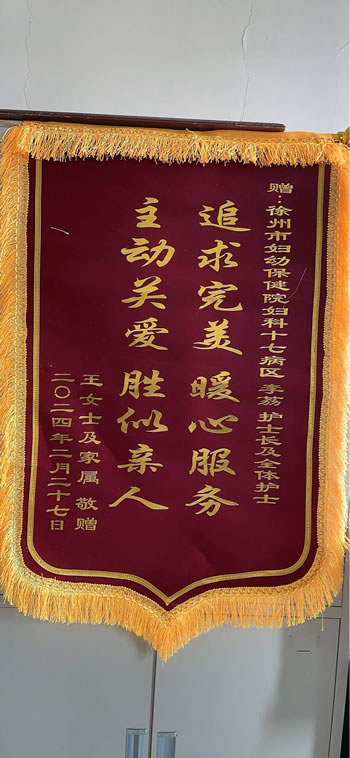 赠：徐州市妇幼保健院妇科十七病区 李荔 护士长及全体护士
追求完美 暖心服务
主动关爱 胜似亲人
王女士及家属 敬赠
二〇二四年二月二十七日